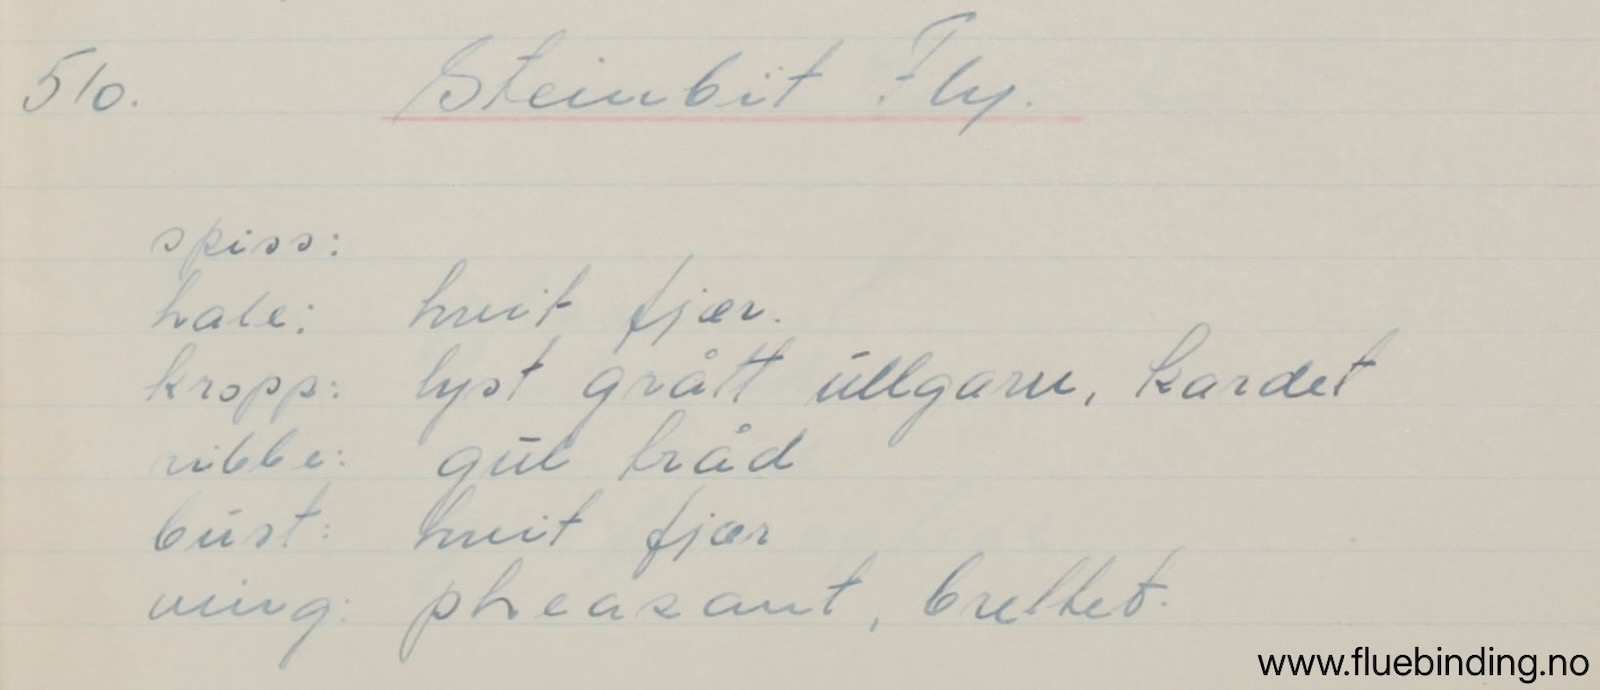 510. Steinbit Fly.
spiss:
hale: hvit fjær.
kropp: lyst grått ullgarn, kardet
ribbe: gul tråd
bust: hvit fjær
ving: pheasant, breltet.
www.fluebinding.no